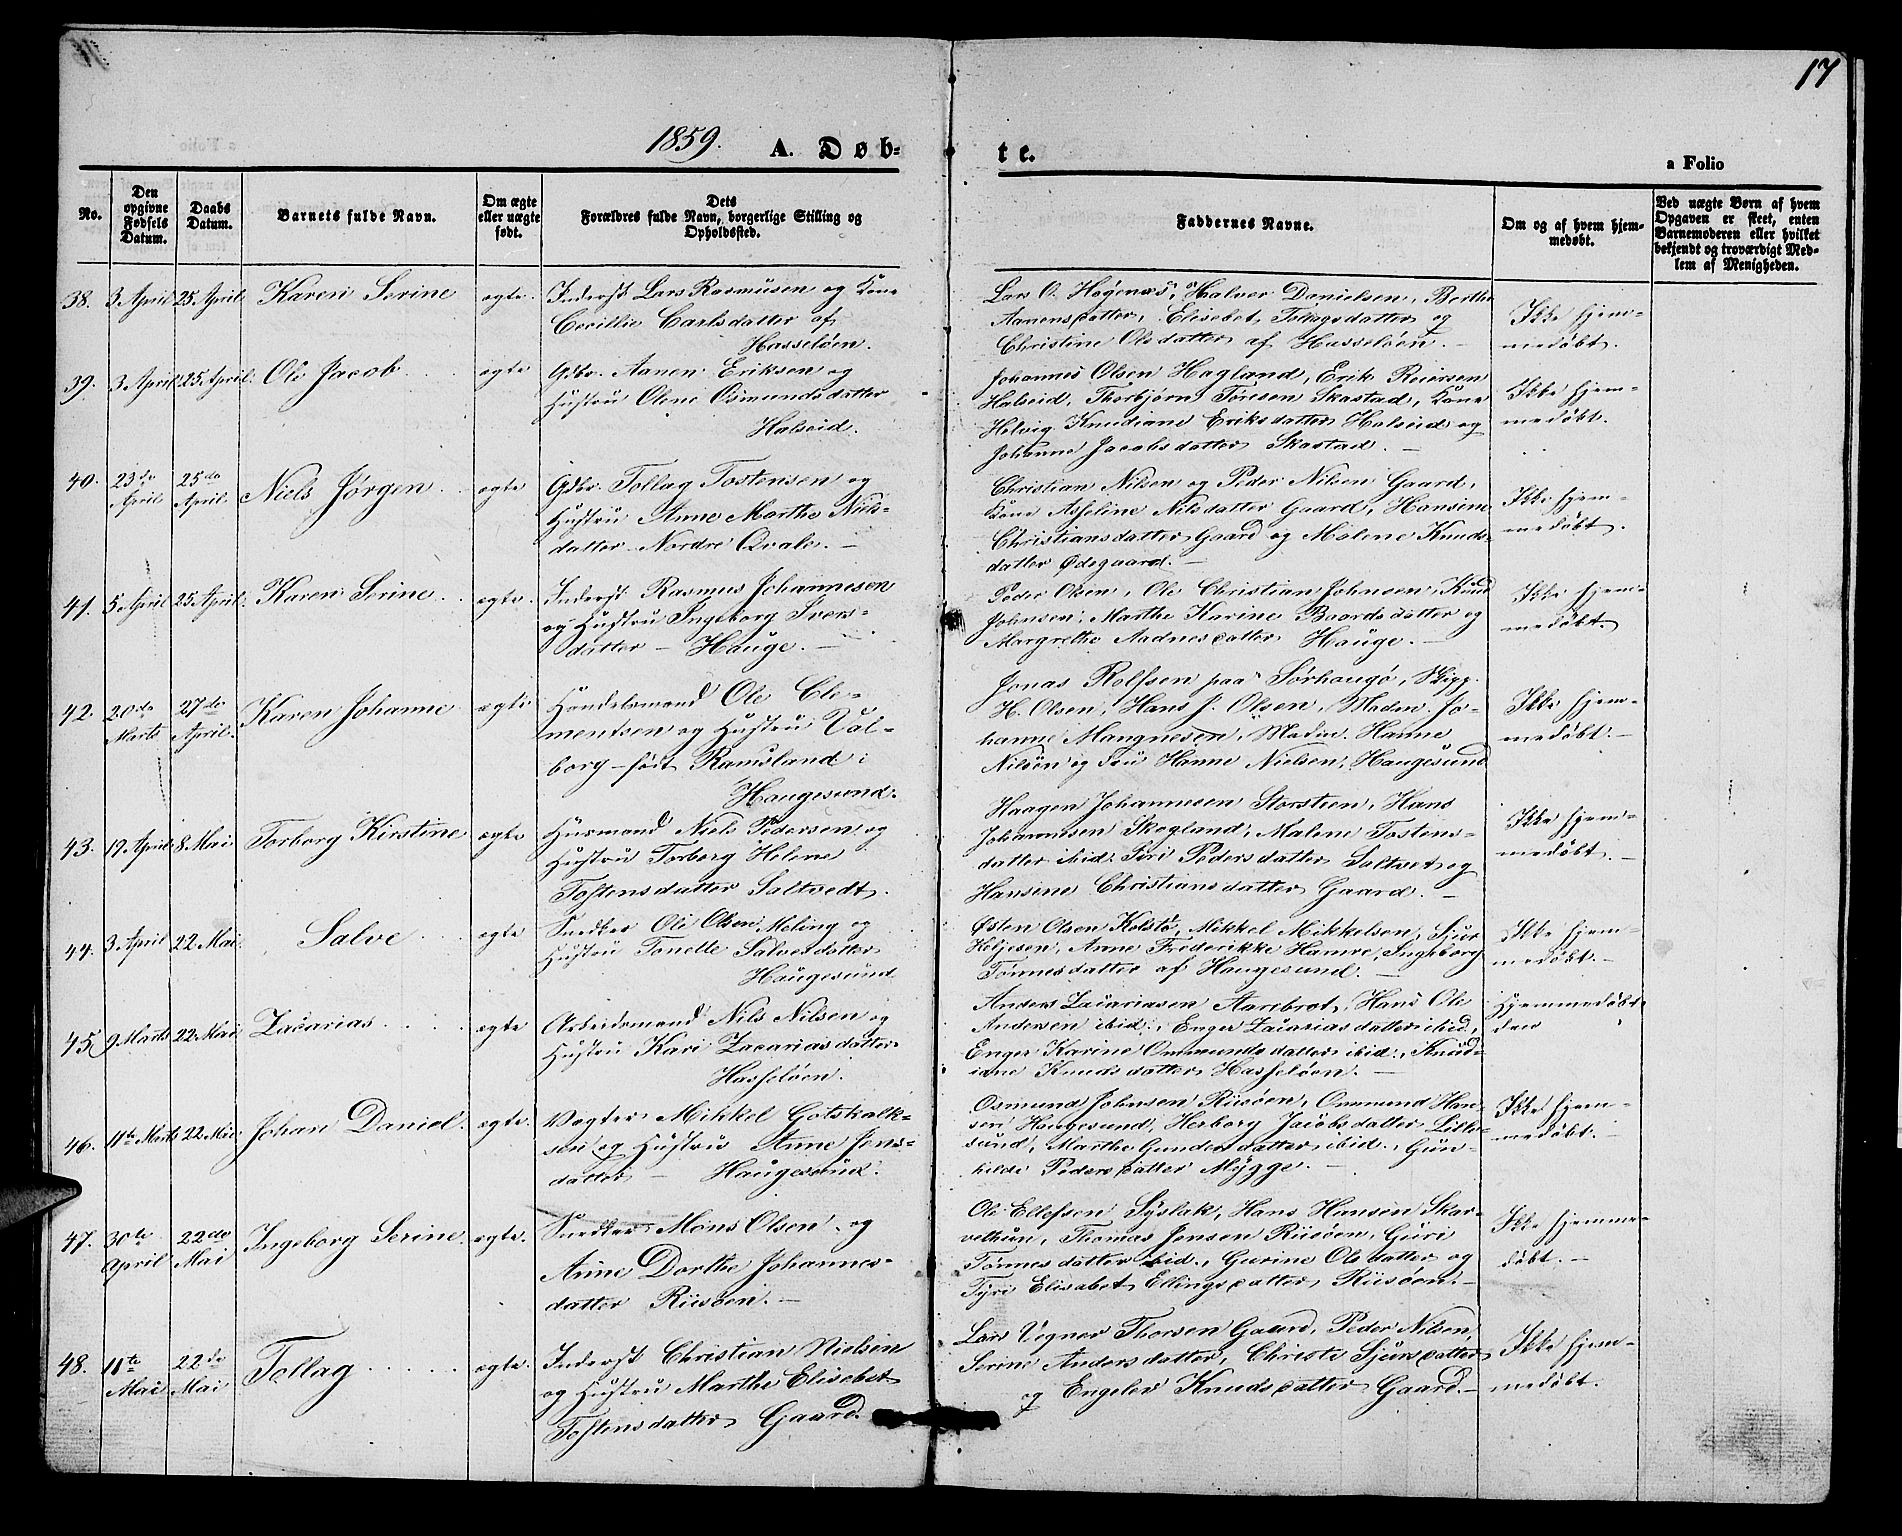 17
1859. A. Døb-
te.
a Folio
No.
Den opgivne Fødsels Datum.
Daabs Datum.
Barnets fulde Navn.
Om ægte eller uægte født.
Dets Forældres fulde Navn, borgerlige Stilling og Opholdssted.
Faddernes Navne.
Om og af hvem hjem-medøbt.
Ved uægte Børn af hvem Opgaven er skeet, enten Barnemoderen eller hvilket bekjendt og troværdigt Medlem af Menigheden.
38. 3 April 25 April Karen Serine ægte.
Inderst Lars Rasmusen og Kone
Cecillie Carlsdatter af
Hasseløen.
Lars O. Høgenæs, Halver Danielsen, Berthe
Aanensdatter, Elisabet Tollagsdatter og
Christine Olsdatter af Hasseløen. —
Ikke hjem-
medøbt.
39. 3 April 25 April. Ole Jacob ægte
Gdbr. Aanen Eriksen og
Hustru Olene Osmundsdatter
Halseid.
Johannes Olsen Hagland, Erik Reiersen
Halseid, Thorbjørn Toresen Skastad, Kone
Helvig Knudiane Eriksdatter Halseid og
Johanne Jacobsdatter Skastad. —
Ikke hjem-
medøbt.
40. 23de April 25de April. Niels Jørgen ægte
Gdbr. Tollag Tostensen og
Hustru Anne Marthe Niels-
datter Nordre Qvale. —
Christian Nilsen og Peder Nilsen Gaard,
Kone Asseline Nilsdatter Gaard, Hansine
Christiansdatter Gaard og Malene Knuds-
datter Ødegaard. —
Ikke hjem-
medøbt.
41. 5 April 25 April. Karen Serine ægte.
Inderst Rasmus Johannesen
og Hustru Ingeborg Ivers-
datter — Hauge. —
Peder Olsen, Ole Christian Johnsen, Knud
Johnsen, Marthe Karine Baardsdatter og
Margrethe Aadnesdatter Hauge. —
Ikke hjem-
medøbt.
42. 20de Marts 27de April. Karen Johanne ægte
Handelsmand Ole Cle-
mentsen og Hustru Val-
borg født Ramsland i
Haugesund.
Jonas Rolfsen paa Sørhaugø, Skipp.
H. Olsen, Hans J. Olsen, Madm. Jo-
hanne Mangnesen, Madm. Hanne
Nilsen og Hanne Nielsen, Haugesund
Ikke hjem-
medøbt. —
43. 19 April 8 Mai Torborg Kirstine ægte
Husmand Niels Pedersen og
Hustru Torborg Helene
Tostensdatter Saltvedt.
Haagen Johannesen Storsteen, Hans
Johannesen Skogland, Malene Tostens-
datter ibid. Siri Pedersdatter Saltvet og
Hansine Christiansdatter Gaard. —
Ikke hjem-
medøbt. —
44. 3 April 22 Mai. Salve ægte
Snedker Ole Olsen Meling og
Hustru Tonette Salvesdatter
Haugesund
Østen Olsen Kolstø, Mikkel Mikkelsen, Sjur
Heljesen, Anne Frederikke Hamre, Ingeborg
Tønnesdatter af Haugesund. —
Ikke hjem-
medøbt. —
45. 9 Marts 22 Mai Zacarias ægte
Arbeidsmand Nils Nilsen og
Hustru Kari Zacariasdatter
Hasseløen.
Anders Zacariasen Aarebrot, Hans Ole
Andersen ibid., Enger Zacariasdatter ibid.,
Enger Karine Ommundsdatter ibid., Knud-
iane Knudsdatter Hasseløen. —
Hjemmedøbt
46. 11te Marts 22 Mai Johan Daniel. ægte.
Vegter Mikkel Gotskalk-
sen og Hustru Anne Jens-
datter — Haugesund.
Osmund Johnsen Risøen, Ommund Han-
sen Haugesund, Herborg Jacobsdatter Lille-
sund, Marthe Gundersdatter ibid., Gun-
hilde Pedersdatter Mygge. —
Ikke hjem-
medøbt. —
47. 30te April 22de Mai Ingeborg Serine. ægte.
Snedker Mons Olsen og
Anne Dorthe Johannes-
datter Riisøen. —
Ole Ellefsen Syslak, Hans Hansen Skar-
vethun, Thomas Jensen Riisøen, Guri
Tønnesdatter ibid., Gurine Olsdatter og
Tyri Elisabet Ellingsdatter Riisøen. —
Ikke hjemme-
døbt. —
48. 11te Mai 22de Mai Tollag ægte.
Inderst Christian Nielsen
og Hustru Marthe Elisabet
Tostensdatter Gaard.
Lars Vegner Thorsen Gaard, Peder Nilsen,
Serine Andersdatter, Christi Sjursdatter
og Engelev Knudsdatter Gaard. —
Ikke hjem-
medøbt.